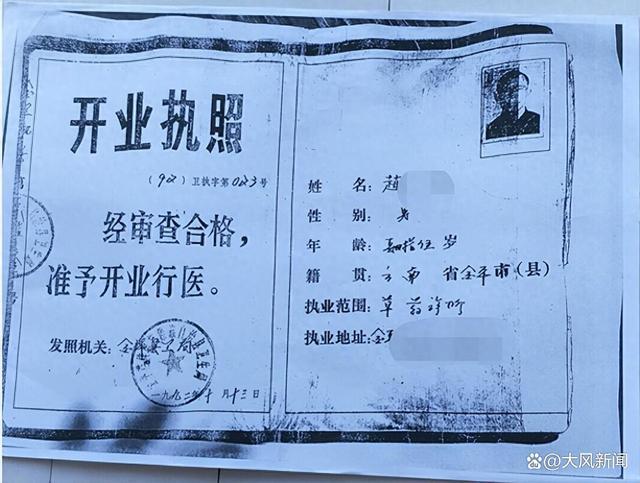 开业执照
(92) 卫执字第023号
经审查合格，
准予开业行医。
发照机关：
一九九二年十月十三日
姓名：赵
性别：男
年龄：肆拾伍岁
籍贯：云南省金平市（县）
执业范围：草药诊所
执业地址：金
@大风新闻